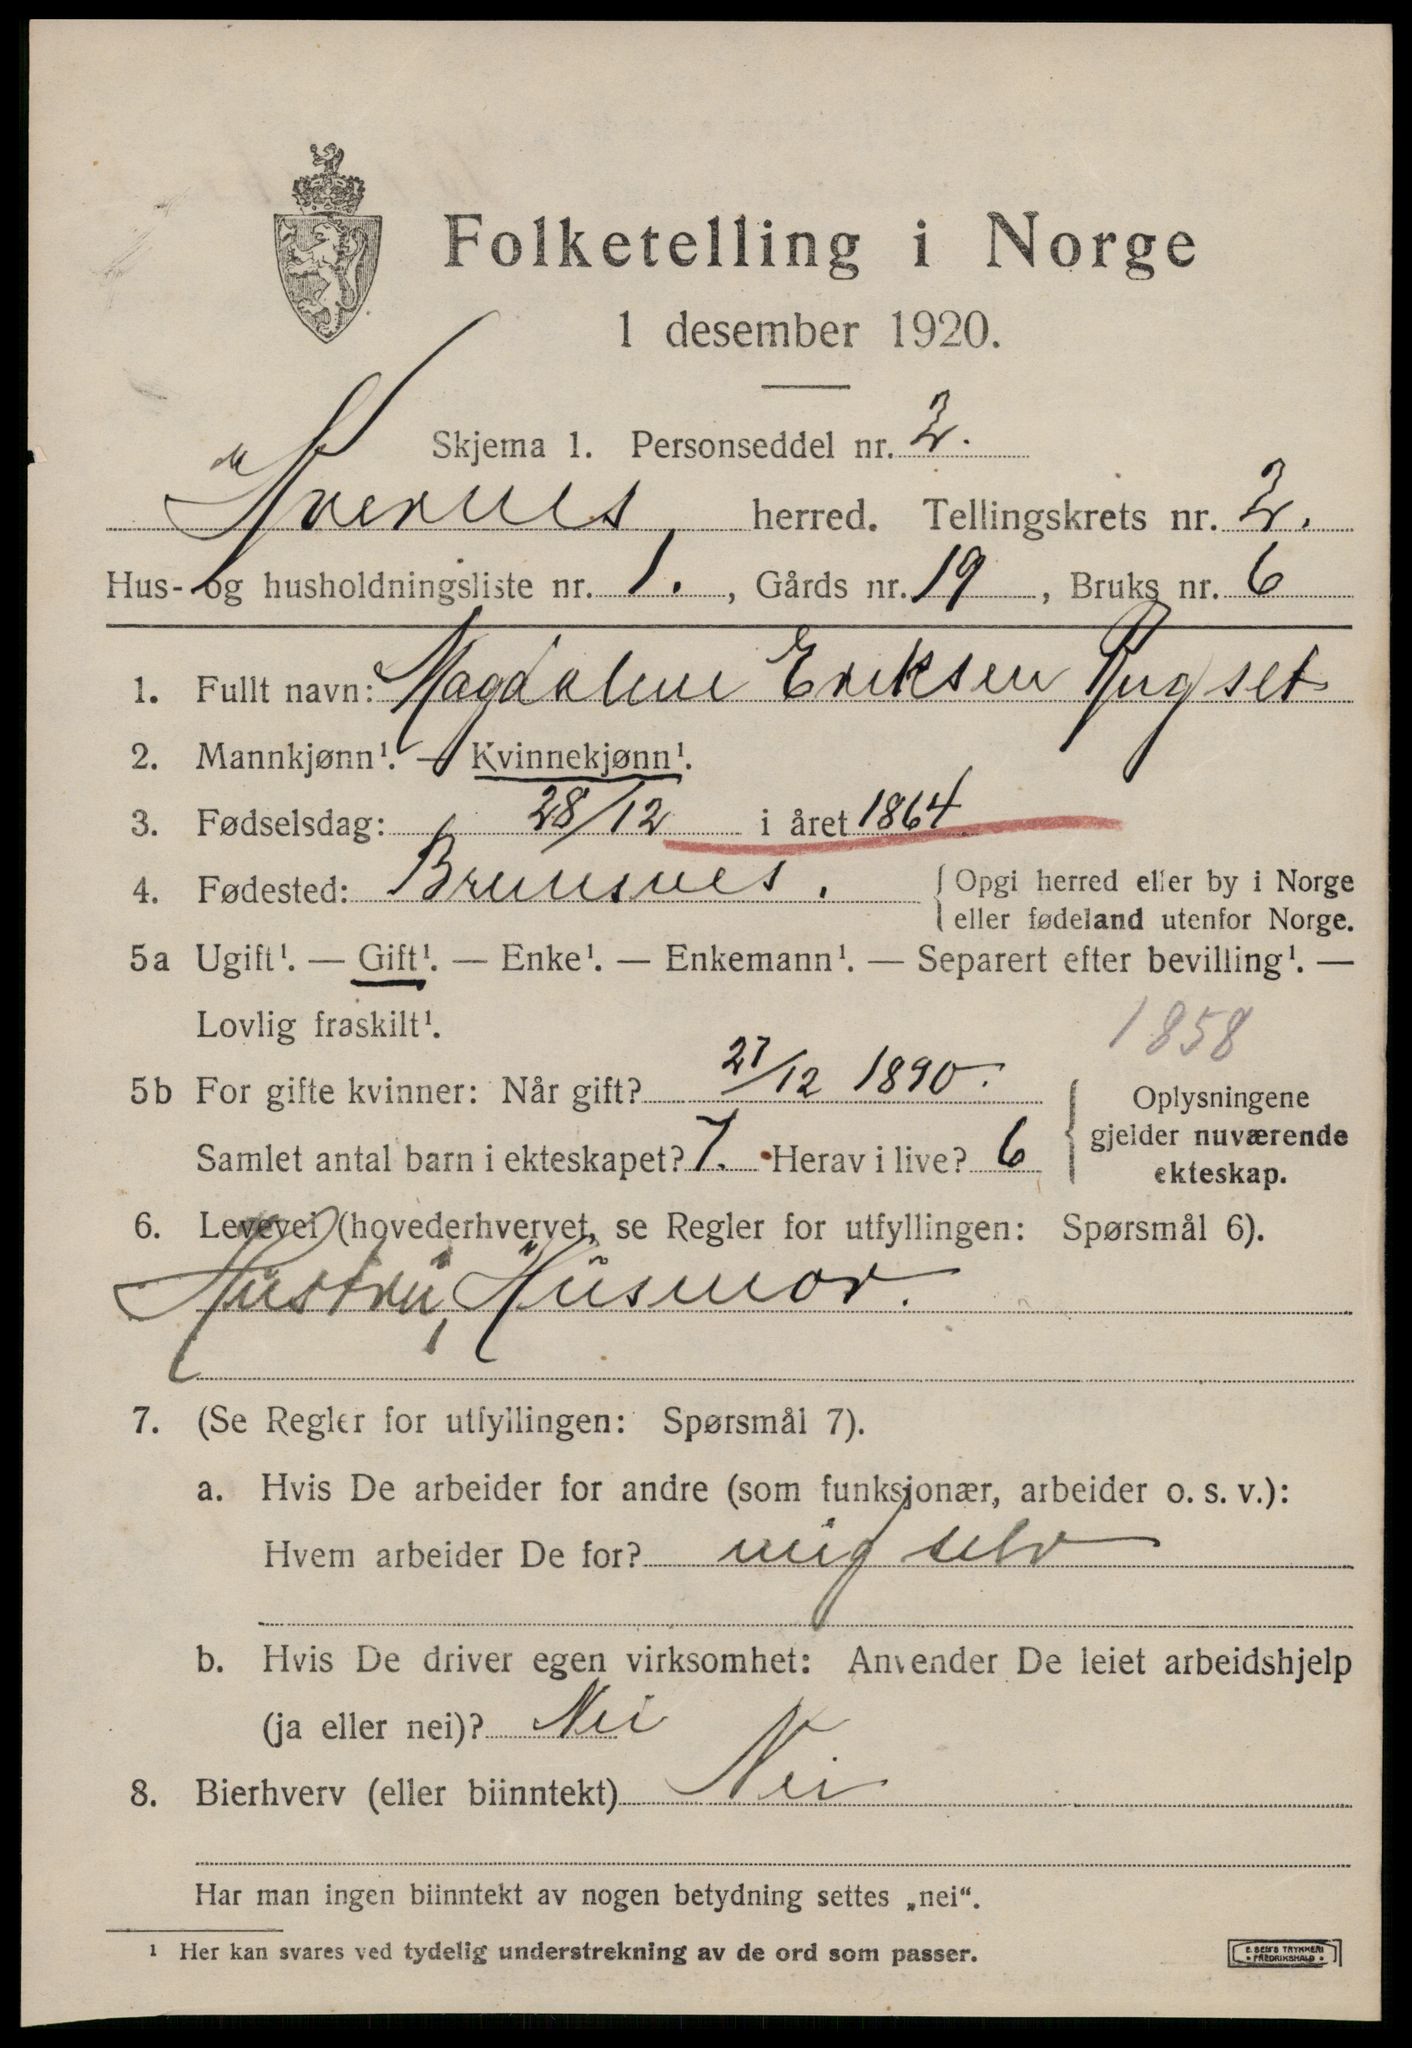 Folketelling i Norge
1 desember 1920.
Skjema 1. Personseddel nr. 2.
Kvernes herred. Tellingskrets nr. 2.
Hus- og husholdningsliste nr. 1., Gårds nr. 19, Bruks nr. 6
1. Fullt navn: Magdalene Eriksen Rugset
2. Mannkjønn¹. — Kvinnekjønn¹.
3. Fødselsdag: 28/12 i året 1864.
4. Fødested: Bremsnes. { Opgi herred eller by i Norge
eller fødeland utenfor Norge.
5a Ugift¹. — Gift¹. — Enke¹. — Enkemann¹. — Separert efter bevilling¹. —
Lovlig fraskilt¹.
1858
5b For gifte kvinner: Når gift? 27/12 1890.
Samlet antal barn i ekteskapet? 7. Herav i live? 6
{ Oplysningene
gjelder nuværende
ekteskap.
6. Levevei (hovederhvervet, se Regler for utfyllingen: Spørsmål 6).
Hustru, Husmor.
7. (Se Regler for utfyllingen: Spørsmål 7).
a. Hvis De arbeider for andre (som funksjonær, arbeider o. s. v.):
Hvem arbeider De for? mig selv
b. Hvis De driver egen virksomhet: Anvender De leiet arbeidshjelp
(ja eller nei)? Nei
8. Bierhverv (eller biinntekt) Nei
Har man ingen biinntekt av nogen betydning settes „nei“.
¹ Her kan svares ved tydelig understrekning av de ord som passer.
E. SEMS TRYKKERI
FREDRIKSHALD